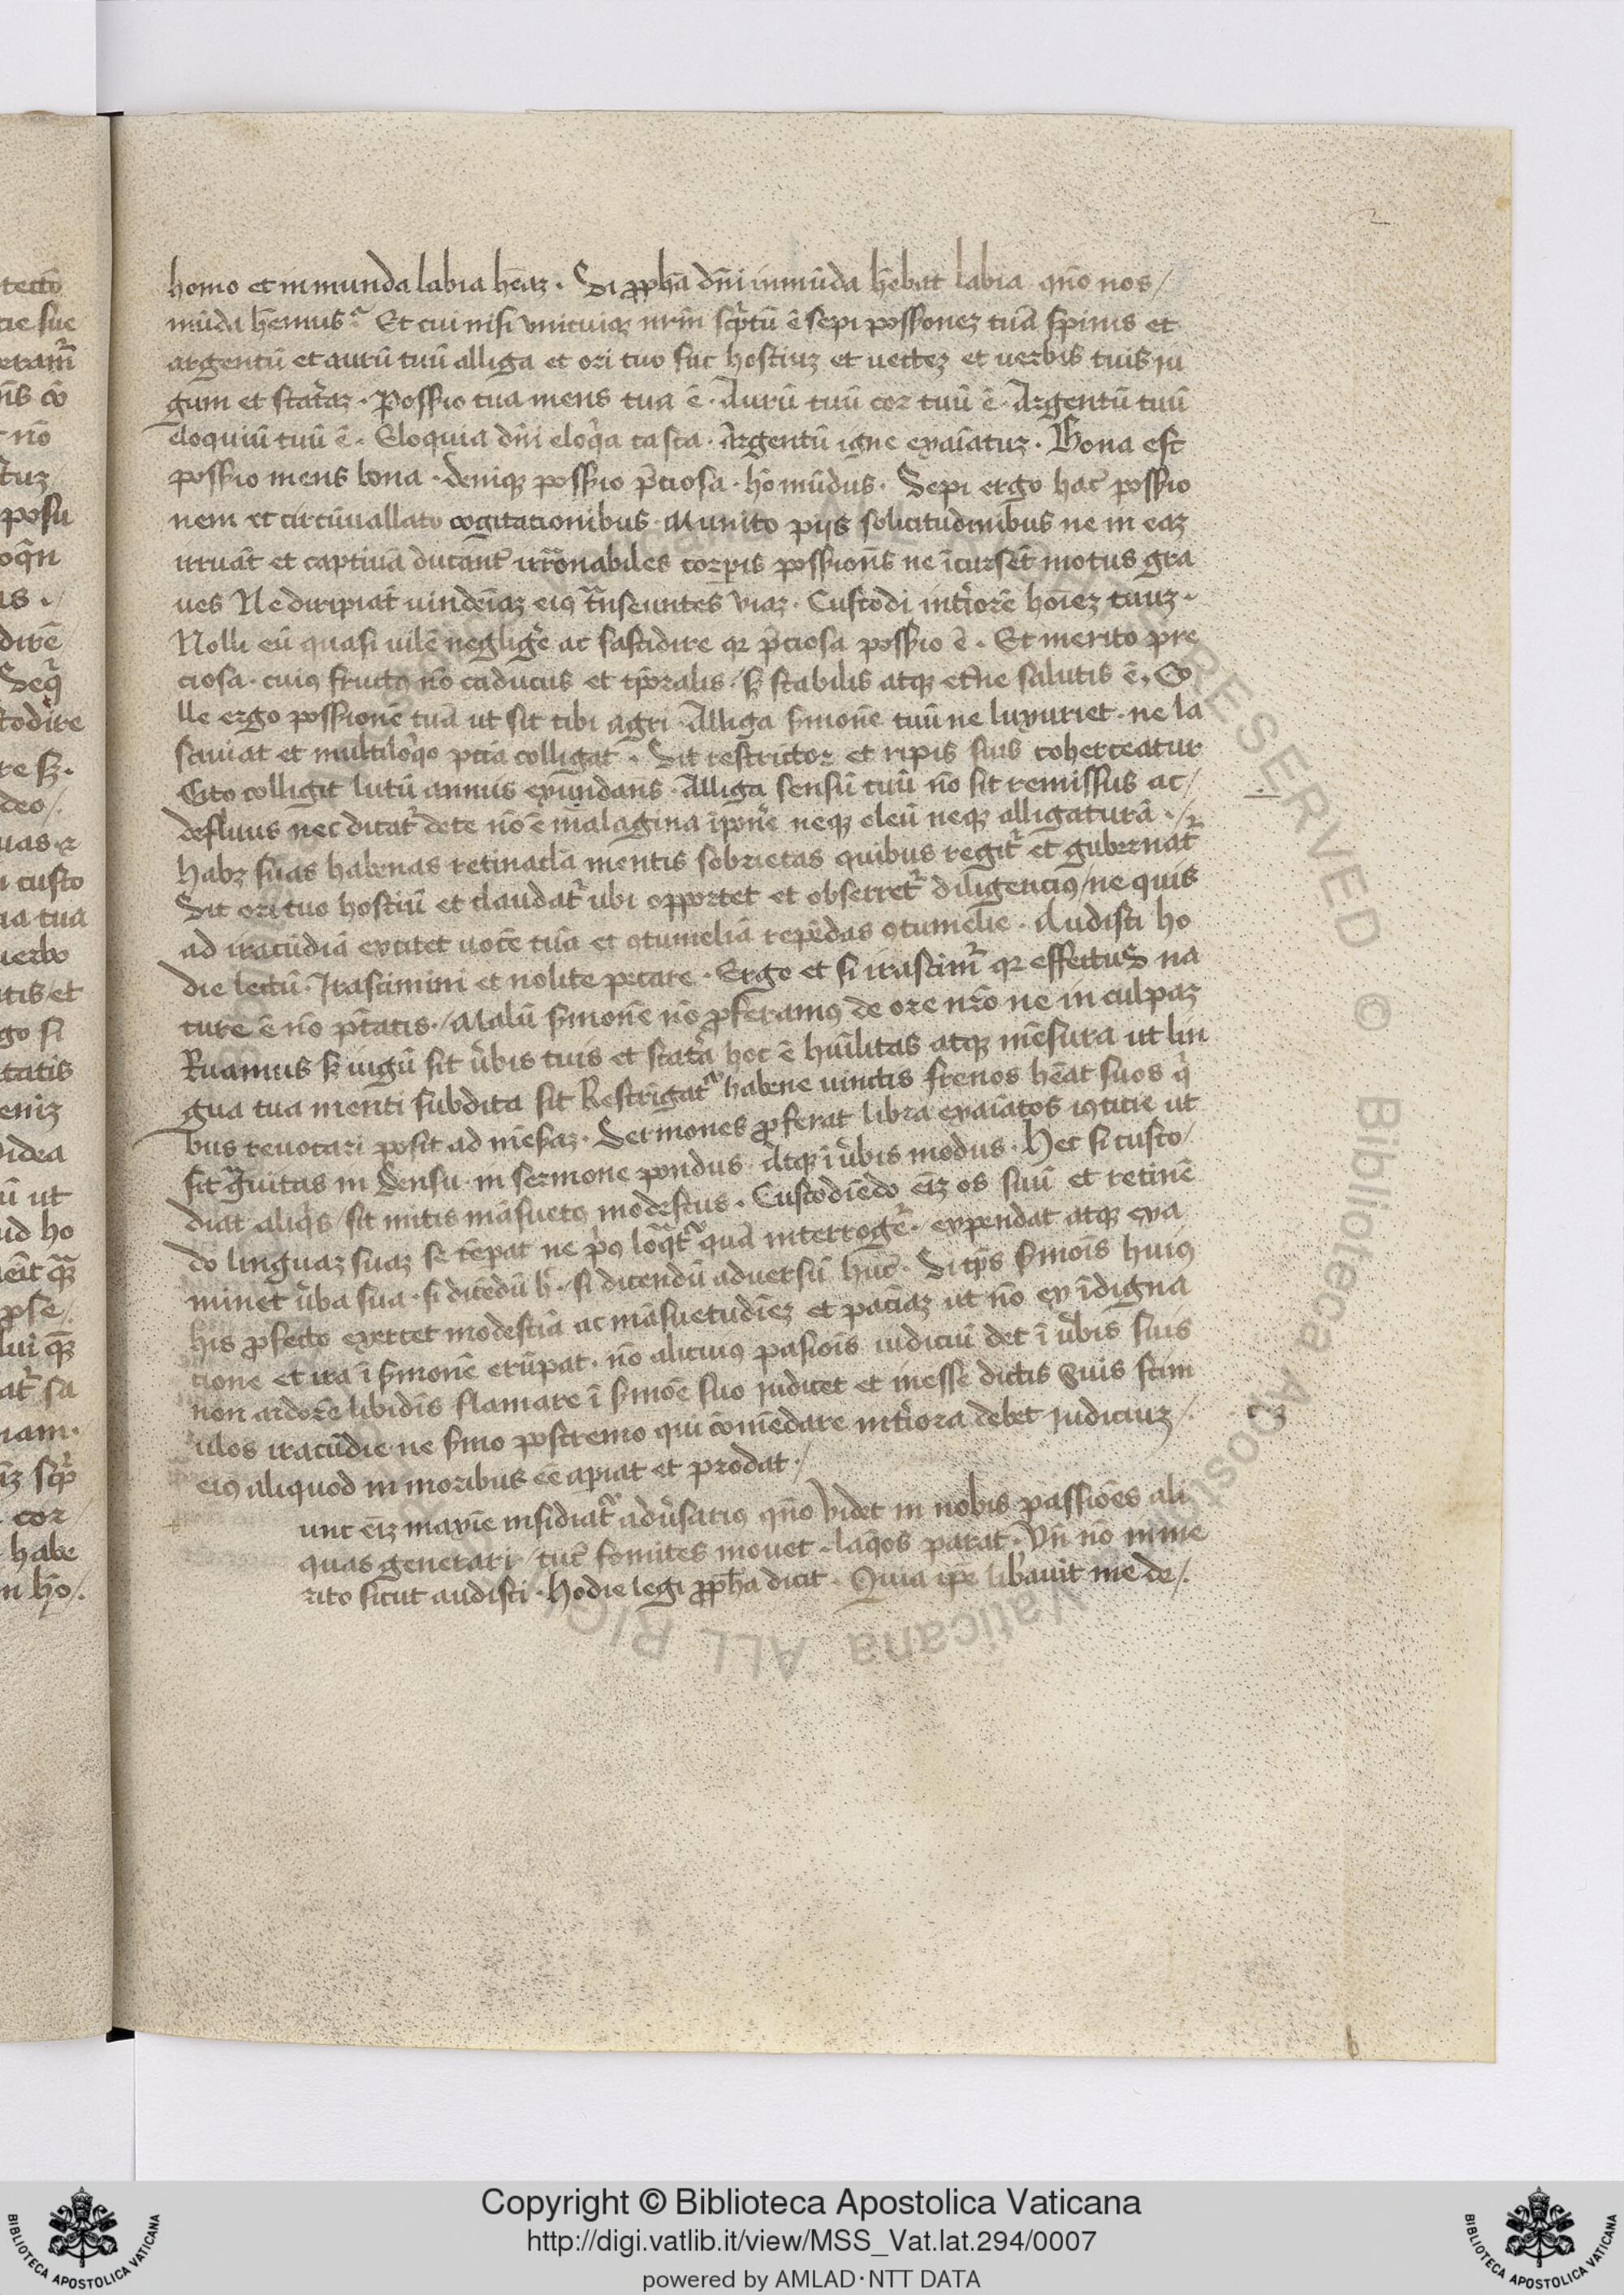 homo et inmunda labia hēāz · Si ꝓph̄a dn̄i inmūda hēbat labia qn̄o nos/
mūda hēmus ? Et cui nisi vnicuiqꝫ nrm̄ scp̄tū ē sepi possionez tuā spinis et
argentū et aurū tuū alliga et ori tuo fac hostiuz et uectez et uerbis tuis iu
gum et stat̄az · Possio tua mens tua ē · Aurū tuū cor tuū ē · Argentū tuū
eloquiū tuū ē · Eloquia dn̄i eloq̄a casta · Argentū igne exaīatuz · Bona est
possio mens bona · deniqꝫ possio p̄ciosa · hō mūdus · Sepi ergo hac̄ possio
nem et circūuallato cogitacionibus · Munito pijs solicitudinibus ne in eaz
irruāt et captiuā ducant̄ irrōnabiles corpis possionēs ne īcursēt motus gra
ues Ne diripiāt uindēiaz eiꝰ t̄nseuntes viaz · Custodi int̄iorē hoīez tuuz ·
Nolli eū quasi uilē negligē ac fastidire qꝛ p̄ciosa possio ē · Et merito pre
ciosa · cuiꝰ fructꝰ nō caducus et tp̄oralis · sꝫ stabilis atqꝫ et̄ne salutis ē · Co
lle ergo possionē tuā ut sit tibi agri · Alliga smonē tuū ne luxuriet · ne la
sciuiat et multiloqo pcc̄ā colligat · Sit restrictor et ripis suis coherceatur
Cito colligit lutū amnis exundans · Alliga sensū tuū nō sit remissus ac/
defluus nec dicat̄ de te nō ē malagma īpone neqꝫ oleū neqꝫ alligaturā · /
habꝫ suas habenas retinacla mentis sobrietas quibus regit̄ et gubernat̄
Sit ori tuo hostiū et claudat̄ ubi opportet et obserret̄ diligenciꝰ/ne quis
ad iracūdiā excitet uocē tuā et ꝯtumeliā repēdas ꝯtumelie · Audisti ho
die lectū · Irascimini et nolite peccare · Ergo et si irascim̄ qꝛ effectus na
ture ē nō p̄tatis · / Malū smonē nō ꝓferamꝰ de ore nr̄o ne in culpaz
Ruamus sꝫ iugū sit ūbis tuis et stat̄a hoc ē huīlitas atqꝫ mēsura ut lin
gua tua menti subdita sit Restrīgat̄ habene uinclis frenos hēat suos q̄
bus reuocari posit ad mēsaz · Sermones ꝓferat libra exaīatos iꝰticie ut
sit ḡuitas in sensu in sermone pondus · Atqꝫ ī ūbis modus · Hec si custo/
diat aliq̄s / sit mitis māsuetꝰ modestus · Custodiēdo eīz os suū et retinē
do linguaz suaz se tēpat ne p̄ꝰ loq̄t̄ quā interrogē · expendat atqꝫ exa
minet ūba sua · si dicēdū h̄ · si dicendū aduersū hūc · Si tp̄s smoīs huiꝰ
his ꝓfecto exercet modestiā ac māsuetudīez et paciāz ut nō ex īdigna
cione et ira ī smonē erūpat · nō alicuiꝰ pasiōis iudiciū det ī ūbis suis
non ardorē libidīs flamare ī smōe suo iudicet et inesse dictis suis stim
ulos iracūdie · ne smo postremo qui comēdare int̄iora debet iudiciuz /·
eiꝰ aliquod in moribus eē apiat et prodat · /
unc eīz maxīe insidiat̄ adūsariꝰ qn̄o videt in nobis passiōes ali
quas generari / tūc fomites mouet · laq̄os parat · Vn̄ nō inme
rito sicut audisti · hodie legi ꝓph̄a dicit · Quia ip̄e lib̄auit me de /·
Copyright © Biblioteca Apostolica Vaticana
http://digi.vatlib.it/view/MSS_Vat.lat.294/0007
powered by AMLAD·NTT DATA